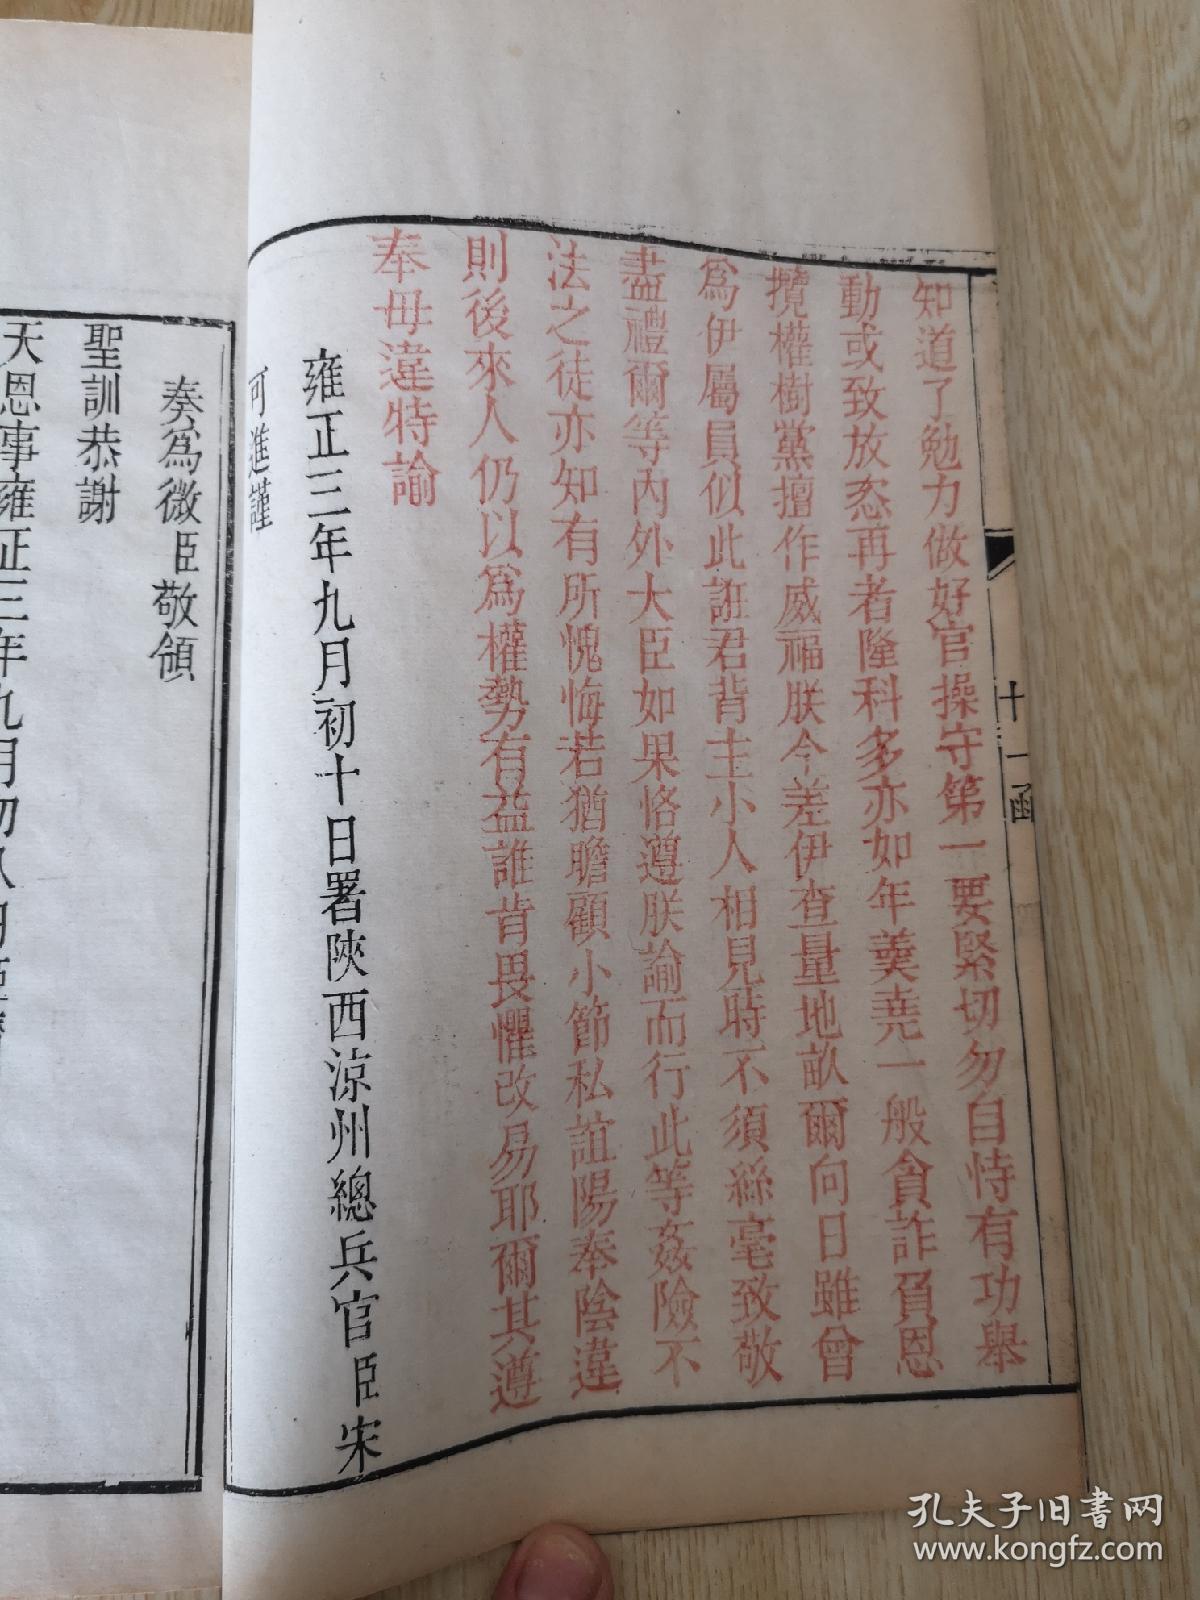 知道了勉力做好官操守第一要緊切勿自恃有功舉
動或致放恣再者隆科多亦如年羹堯一般貪詐負恩
攬權樹黨擅作威福朕今差伊查量地畝爾向日雖曾
為伊屬員似此誑君背主小人相見時不須絲毫致敬
盡禮爾等內外大臣如果恪遵朕諭而行此等姦險不
法之徒亦知有所愧悔若猶瞻顧小節私誼陽奉陰違
則後來人仍以為權勢有益誰肯畏懼改易耶爾其遵
奉毋違特諭
雍正三年九月初十日署陝西涼州總兵官臣宋
可進謹
奏為微臣敬領
聖訓恭謝
天恩事雍正三年九月初八日
十一函
孔夫子旧书网
www.kongfz.com